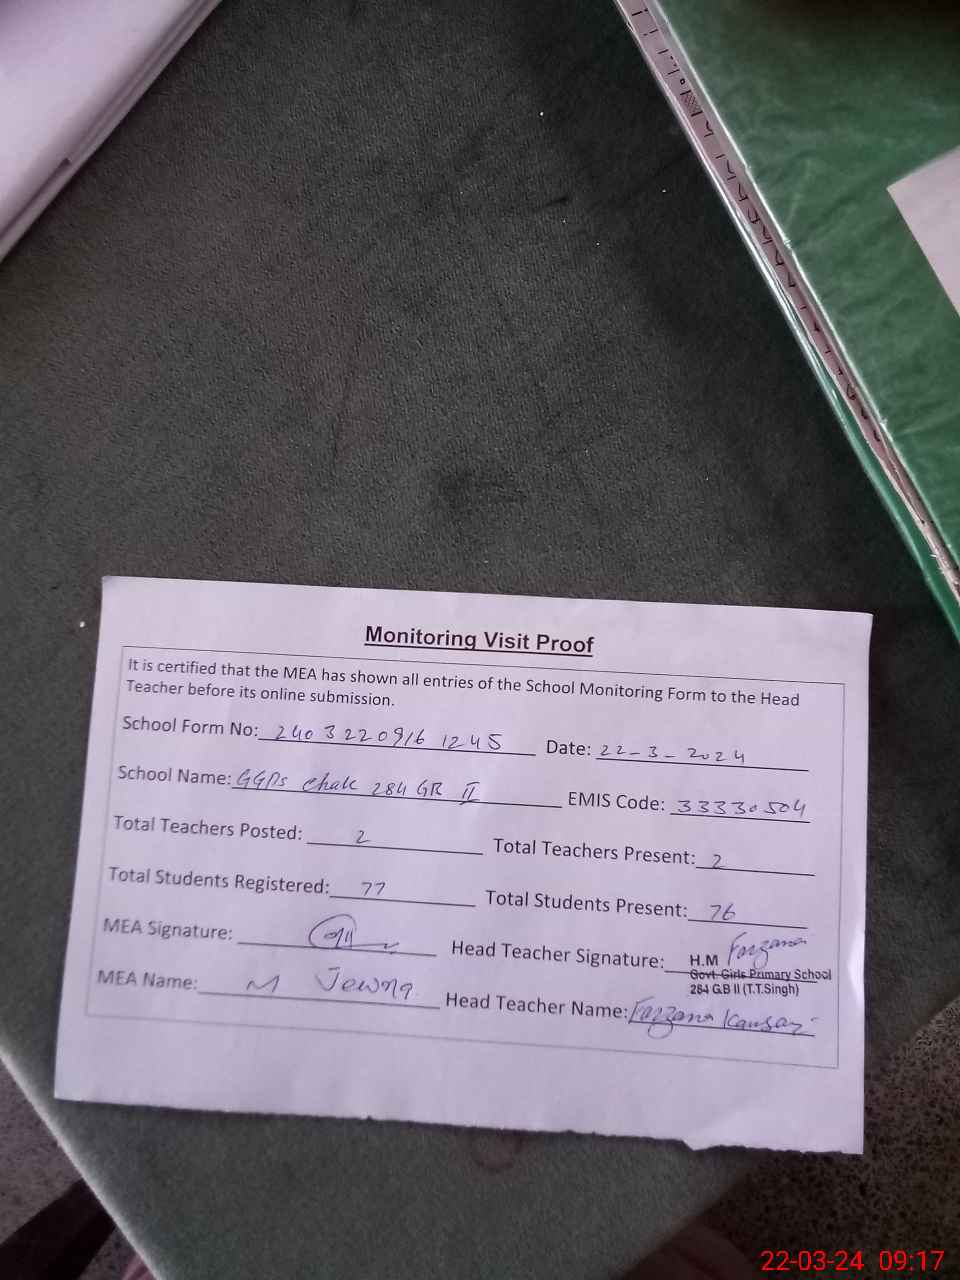 Monitoring Visit Proof
It is certified that the MEA has shown all entries of the School Monitoring Form to the Head
Teacher before its online submission.
School Form No: 240 3 220916 1245 Date: 22-3-2024
School Name: GGPS Chak 284 GB II EMIS Code: 33330504
Total Teachers Posted: 2 Total Teachers Present: 2
Total Students Registered: 77 Total Students Present: 76
MEA Signature: Head Teacher Signature: Farzana
H.M
Govt. Girls Primary School
284 G.B II (T.T.Singh)
MEA Name: M Head Teacher Name: Farzana Kausar
22-03-24 09:17